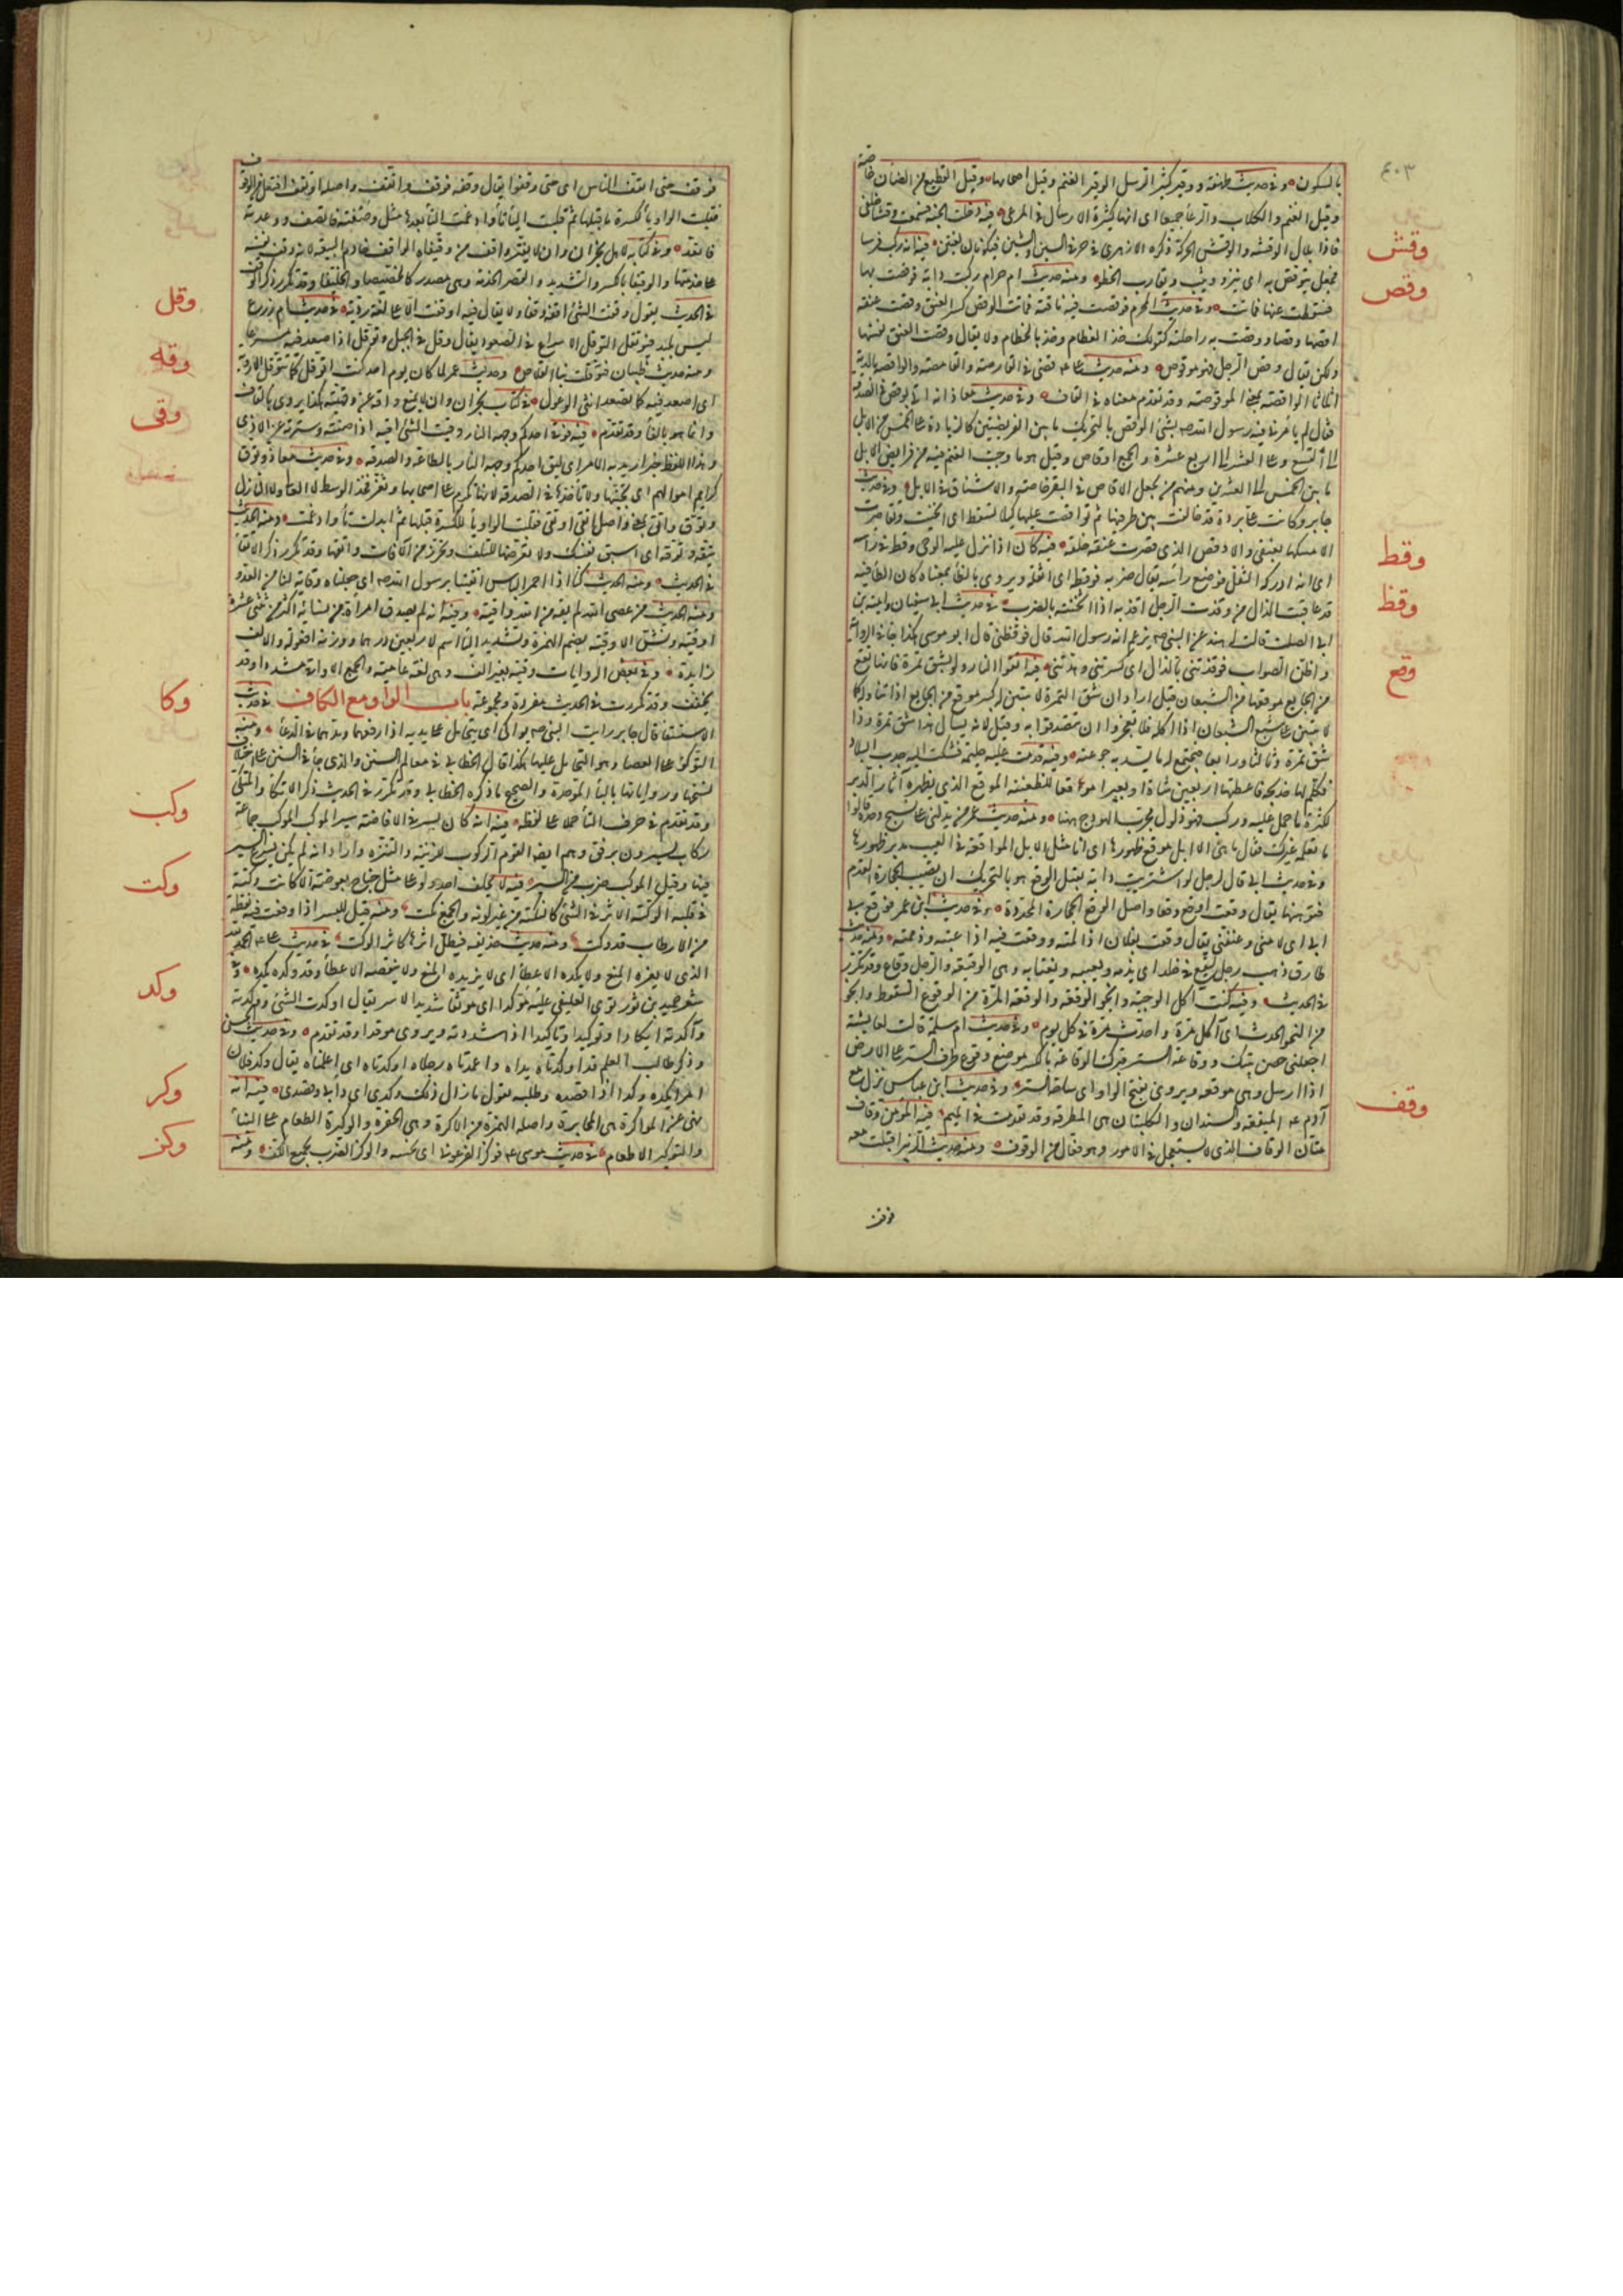 ٤٠٣
بالسكون وفى حديث طهفة ووقير كثير الرسل الوقير الغنم وقيل اصحابها وقيل القطيع من الضان خاصة
وقيل الغنم والكلاب والرعا جميعا اى انها كثيرة الارسال فى المرعى فيه دخلت الجنة فسمعت وقشا خلفى
فاذا بلال الوقشة والوقش الحركة ذكره الازهرى فى حرف السين والشين فيكونان لغتين فيه انه ركب فرسا
فجعل يتوقص به اى ينزو ويثب ويقارب الخطو ومنه حديث ام حرام ركبت دابة فوقصت بها
فسقطت عنها فماتت وفى حديث المحرم فوقصت فيه ناقته فمات الوقص كسر العنق وقصت عنقه
اقصها وقصا ووقصت به راحلته كقولك خذ الخطام وخذ بالخطام ولا يقال وقصت العنق نفسها
ولكن يقال وقص الرجل فهو موقوص ومنه حديث على قضى فى القارصة والقامصة والواقصة بالدية
اثلاثا الواقصة بمعنى الموقوصة وقد تقدم معناه فى القاف وفى حديث معاذ انه اتى بوقص فى الصدقة
فقال لم يامرنى فيه رسول الله بشئ الوقص بالتحريك ما بين الفريضتين كالزيادة على الخمس من الابل
الى التسع وعلى العشر الى اربع عشرة والجمع اوقاص وقيل هو ما وجبت الغنم فيه من فرايض الابل
ما بين الخمس الى العشرين ومنهم من يجعل الاوقاص فى البقر خاصة والاشناق فى الابل وفى حديث
جابر وكانت على بردة فخالفت بين طرفيها ثم تواقصت عليها كيلا تسقط اى انحنيت وتقاصرت
لامسكها بعنقى والاوقص الذى قصرت عنقه خلقة فيه كان اذا نزل عليه الوحى وقط فى راسه
اى انه ادركه الثقل فوضع رأسه يقال ضربه فوقطه اى اثقله ويروى بالظا بمعناه كان الظا فيه
قد عاقبت الذال من وقذت الرجل اقذه اذا اثخنته بالضرب فى حديث ابى سفيان وامية بن
ابى الصلت قالت له هند عن النبى يزعم انه رسول الله قال فوقظتنى قال ابو موسى هكذا جا فى الرواية
واظن الصواب فوقذتنى بالذال اى كسرتنى وهدتنى فيه اتقوا النار ولو بشق تمرة فانها تقع
من الجايع موقعها من الشبعان قيل اراد ان شق التمرة لا يتبين له كبير موقع من الجايع اذا تناوله كما
لا يتبين على شبع الشبعان اذا اكله فلا تعجزوا ان تتصدقوا به وقيل لانه يسال هذا شق تمرة وذا
شق تمرة وثالثا ورابعا فيجتمع له ما يسد به جوعته وفيه قدمت عليه حليمة فشكت اليه جدب البلاد
فكلم لها خديجة فاعطتها اربعين شاة وبعيرا موقعا للظعينة الموقع الذى بظهره آثار الدبر
لكثرة ما حمل عليه وركب فهو ذلول مجرب الهودج ههنا ومنه حديث عمر من يدلنى على نسيج وحده قالوا
ما نعلمه غيرك فقال ما هى الا ابل موقع ظهورها اى انا مثل الابل الموقعة فى العيب بدبر ظهورها
وفى حديث ابى قال لرجل لو اشتريت دابة تقيك الوقع هو بالتحريك ان تصيب الحجارة القدم
فتوهنها يقال وقعت اوقع وقعا واصل الوقع الحجارة المحددة وفى حديث ابن عمر فوقع بى
ابى اى لامنى وعنفنى يقال وقعت بفلان اذا لمته ووقعت فيه اذا عبته وذممته ومنه حديث
طارق ذهب رجل ليقع فى خالد اى يذمه ويعيبه ويغتابه وهى الوقيعة والرجل وقاع وقد تكرر
فى الحديث وفيه كنت آكل الوجبة وانجو الوقعة والوقعة المرة من الوقوع السقوط وانجو
من النجو الحدث اى آكل مرة واحدث مرة فى كل يوم وفى حديث ام سلمة قالت لعايشة
اجعلى حصن بيتك ووقاعة الستر قبرك الوقاعة بالكسر موضع وقوع طرف الستر على الارض
اذا ارسل وهى موقعه ويروى بفتح الواو اى ساحة الستر وفى حديث ابن عباس نزل مع
آدم الميقعة والسندان والكلبتان هى المطرقة وقد تقدمت فى الميم فيه المومن وقاف
متأن الوقاف الذى لا يستعجل فى الامور وهو فعال من الوقوف ومنه حديث الزبير اقبلت معه
وقش
وقص
وقط
وقظ
وقع
وقف
فوقف
فوقف حتى اتقف الناس اى حتى وقفوا يقال وقفته فوقف واتقف واصله اوتقف افتعل من الوقوف
فقلبت الواو يا لكسرة ما قبلها ثم قلبت اليا تا وادغمت التا بعدها مثل وصفته فاتصف ووعدته
فاتعد وفى كتابه لاهل نجران وان لا يغير واقف من وقيفاه الواقف خادم البيعة لانه وقف نفسه
على خدمتها والوقيفا بالكسر والتشديد والقصر الخدمة وهى مصدر كالخصيصا والخليفا وقد تكرر ذكر الوقف
فى الحديث يقول وقفت الشئ اقفه وقفا ولا يقال فيه اوقفت الا على لغة ردية فى حديث ام زرع
ليس بلبد فيتوقل التوقل الاسراع فى الصعود يقال وقل فى الجبل وتوقل اذا صعد فيه مسرعا
ومنه حديث ظبيان فتوقلت بنا القلاص وحديث عمر لما كان يوم احد كنت اتوقل كما تتوقل الاروية
اى اصعد فيه كما تصعد انثى الوعول فى كتاب نجران وان لا يمنع واقه عن وقهيته هكذا يروى بالقاف
وانما هو بالفا وقد تقدم فيه فوقى احدكم وجهه النار وقيت الشئ اقيه اذا صنته وسترته عن الاذى
وهذا اللفظ خبر اريد به الامر اى ليق احدكم وجهه النار بالطاعة والصدقة وفى حديث معاذ وتوق
كرايم اموالهم اى تجنبها ولا تاخذها فى الصدقة لانها تكرم على اصحابها وتعز فخذ الوسط لا العالى ولا النازل
وتوقى واتقى بمعنى واصل اتقى اوتقى فقلبت الواو يا للكسرة قبلها ثم ابدلت تا وادغمت ومنه الحديث
تبقه وتوقه اى استبق نفسك ولا تعرضها للتلف وتحرز من الآفات واتقها وقد تكرر ذكر الاتقا
فى الحديث ومنه الحديث كنا اذا احمر الباس اتقينا برسول الله اى جعلناه وقاية لنا من العدو
ومنه الحديث من عصى الله لم يقه من الله واقية وفيه انه لم يصدق امرأة من نسايه اكثر من ثنتى عشرة
اوقية ونش الاوقية بضم الهمزة وتشديد اليا اسم لاربعين درهما ووزنه افعولة والالف
زايدة وفى بعض الروايات وقية بغير الف وهى لغة عامية والجمع الاواقى مشددا وقد
يخفف وقد تكررت فى الحديث مفردة ومجموعة باب الواو مع الكاف فى حديث
الاستسقا قال جابر رايت النبى يواكى اى يتحامل على يديه اذا رفعهما ومدهما فى الدعا ومنه
التوكؤ على العصا وهو التحامل عليها هكذا قال الخطابى فى معالم السنن والذى جا فى السنن على اختلاف
نسخها ورواياتها بالبا الموحدة والصحيح ما ذكره الخطابى وقد تكرر فى الحديث ذكر الاتكا والمتكئ
وقد تقدم فى حرف التا حملا على لفظه فيه انه كان يسير فى الافاضة سير الموكب الموكب جماعة
ركاب يسيرون برفق وهم ايضا القوم الركوب للزينة والتنزه واراد انه لم يكن يسرع السير
فيها وقيل الموكب ضرب من السير فيه لا يحلف احد ولو على مثل جناح بعوضة الا كانت وكتة
فى قلبه الوكتة الاثر فى الشئ كالنكتة من غير لونه والجمع وكت ومنه قيل للبسر اذا وقعت فيه نقطة
من الارطاب قد وكت ومنه حديث حذيفة فيظل اثرها كاثر الوكت فى حديث على الحمد لله
الذى لا يفره المنع ولا يكده الاعطا اى لا يزيده المنع ولا ينقصه الاعطا وقد وكده يكده وفى
شعر حميد بن ثور ترى العليفى عليه موكدا اى موثقا شديد الاسر يقال اوكدت الشئ ووكدته
وآكدته ايكادا وتوكيدا وتاكيدا اذا شددته ويروى موفدا وقد تقدم وفى حديث الحسن
وذكر طالب العلم قد اوكدتاه يداه واعمدتاه رجلاه اوكدتاه اى اعملتاه يقال وكد فلان
امرا يكده وكدا اذا قصده وطلبه تقول ما زال ذلك وكدى اى دابى وقصدى فيه انه
نهى عن المواكرة هى المخابرة واصله الهمزة من الاكرة وهى الحفرة والوكيرة الطعام على البنا
والتوكير الاطعام فى حديث موسى فوكز الفرعونى اى نخسه والوكز الضرب بجمع الكف ومنه
وقل
وقه
وقى
وكا
وكب
وكت
وكد
وكر
وكز